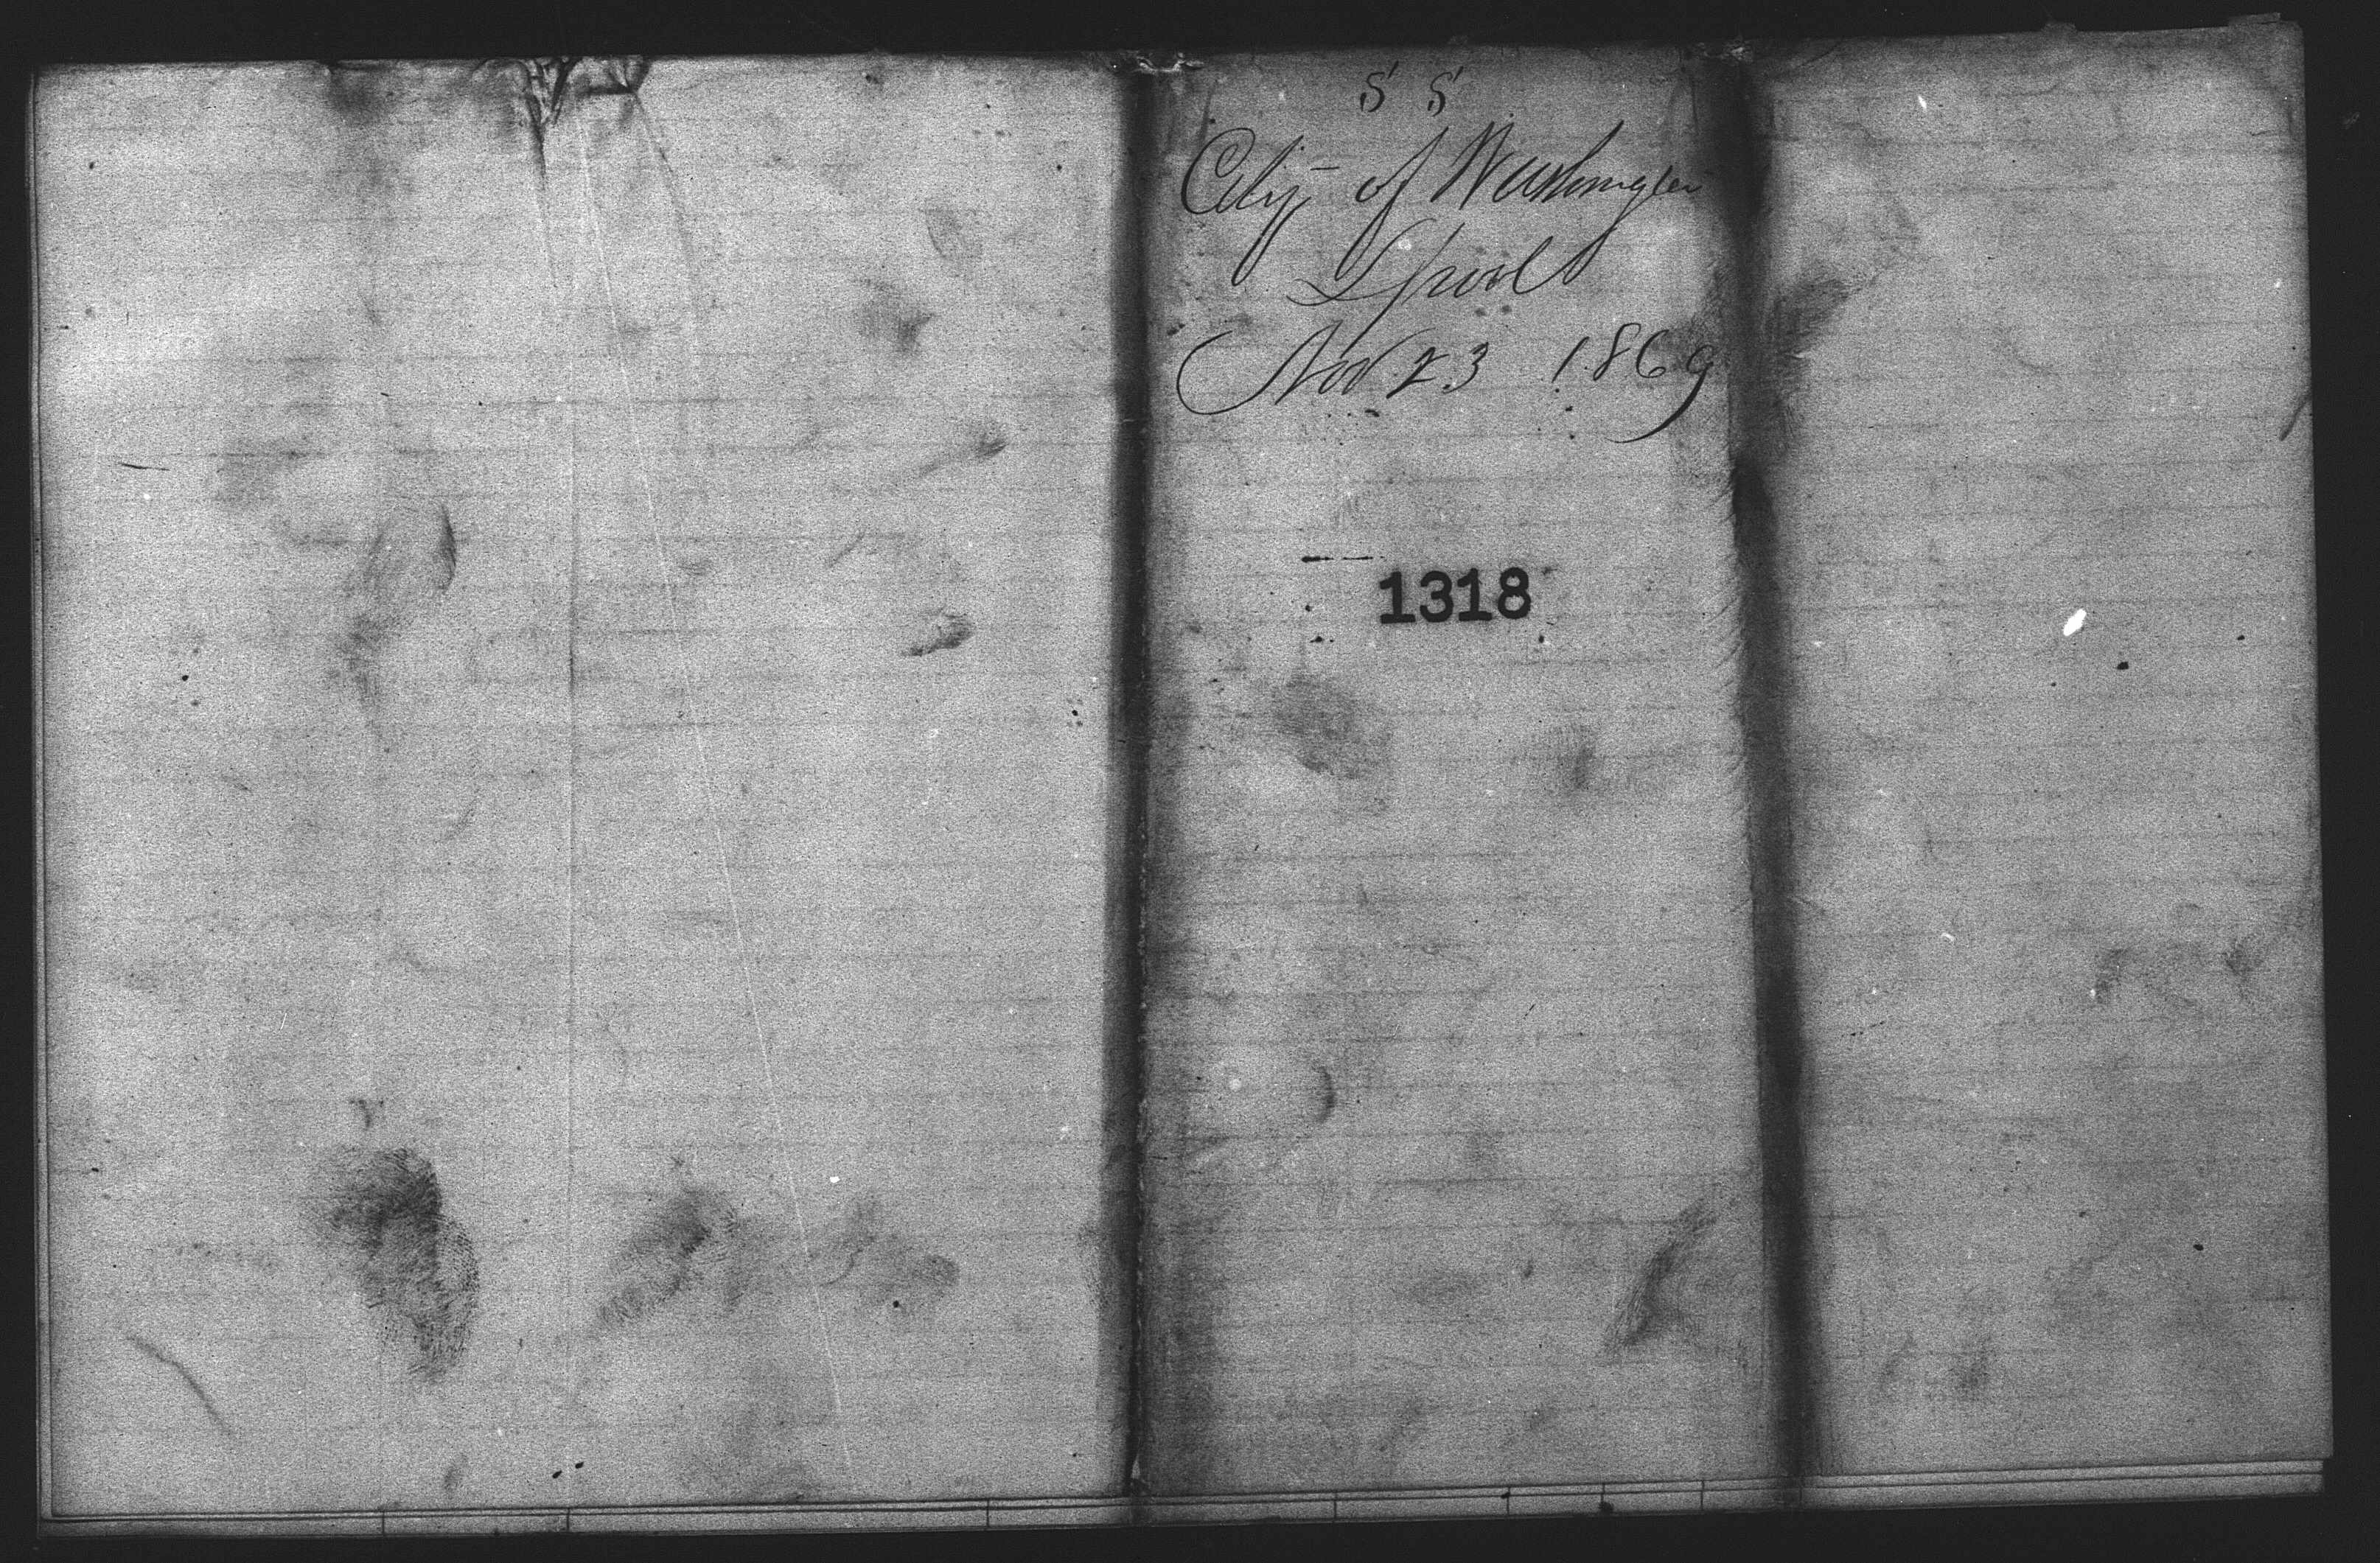 S S
City of Washington
Lpool
Nov 23 1869
1318